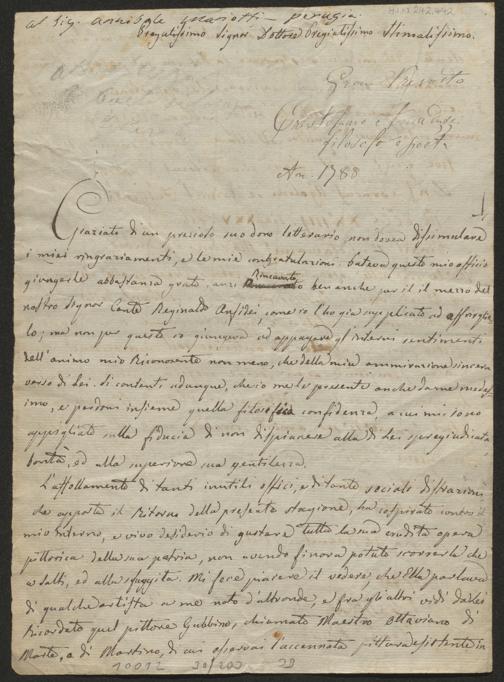 al Sig. Annibale Mariotti - perugia.
Pregiatissimo Signor Dottore Pregiatissimo Stimatissimo.
filosofo e poeta
An. 1788
Graziato di un prezioso suo dono letterario non dovea dissimulare
i miei ringraziamenti, e le mie congratulazioni bateva questo mio officio
giungerle abbastanza grato, anzi Rincarito ben anche per il mezzo del
nostro Signor Conte Reginaldo Ansidei, come io l'ho già supplicato ad
lo; ma non per questo io giungeva ad appagare gl'interni sentimenti
dell'animo mio Riconoscente non meno, che della mia ammirazione sincera
verso di Lei. Si contenti adunque, che io me le presenti anche da me medes
imo, e perdoni insieme quella filosofica confidenza, a cui mi sono
appigliato sulla fiducia di non dispiacere alla di Lei spregiudicata
bontà, ed alla superiore sua gentilezza.
L'affollamento di tanti inutili offici, e di tante sociali distrazioni
che apporta il Ritorno della presente stagione, ha cospirato contro il
mio interno, e vivo desiderio di gustare tutta la sua erudita opera
pittorica della sua patria, non avendo finora potuto scorrerla che
a salti, ed alla sfuggita. Mi fece piacere il vedere, che Ella parlava
di qualche artista a me noto d'altronde, e fra gli altri vidi da Lei
Ricordato quel pittore Gubbino, chiamato Maestro Ottaviano di
Marte, o di Martino, di cui osservai l'accennata pittura esistente in
10012 30/200 22